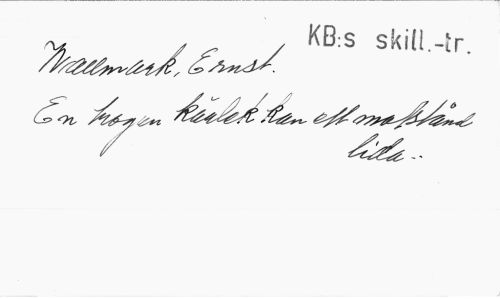 KB:s skill.-tr.
Wallmark, Ernst.
En trogen kärlek kan ett motstånd
lida..